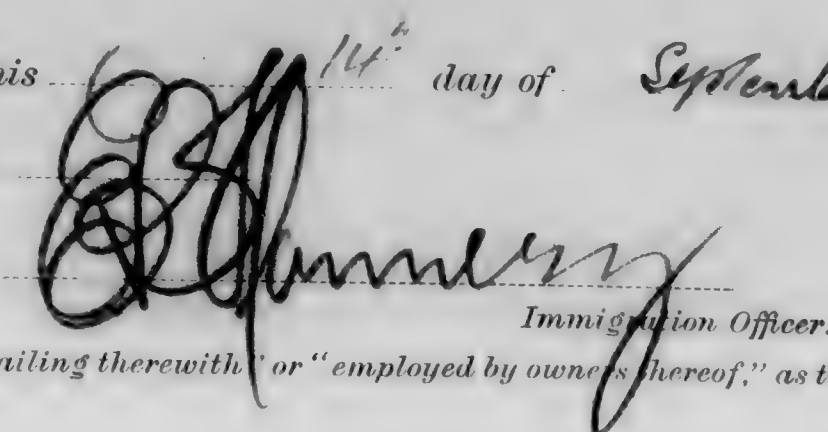 his 14th day of Septemb
Immigration Officer.
ailing therewith" or "employed by owners thereof," as t